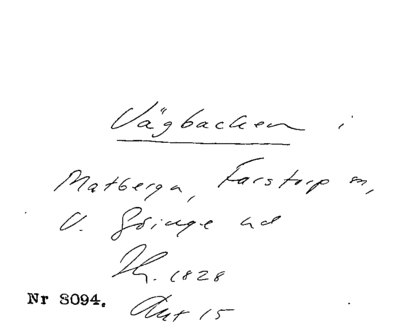 Vägbacken i
Matberga, Farstorp sn,
V. Göinge hd
1828
Nr S094. Akt 15